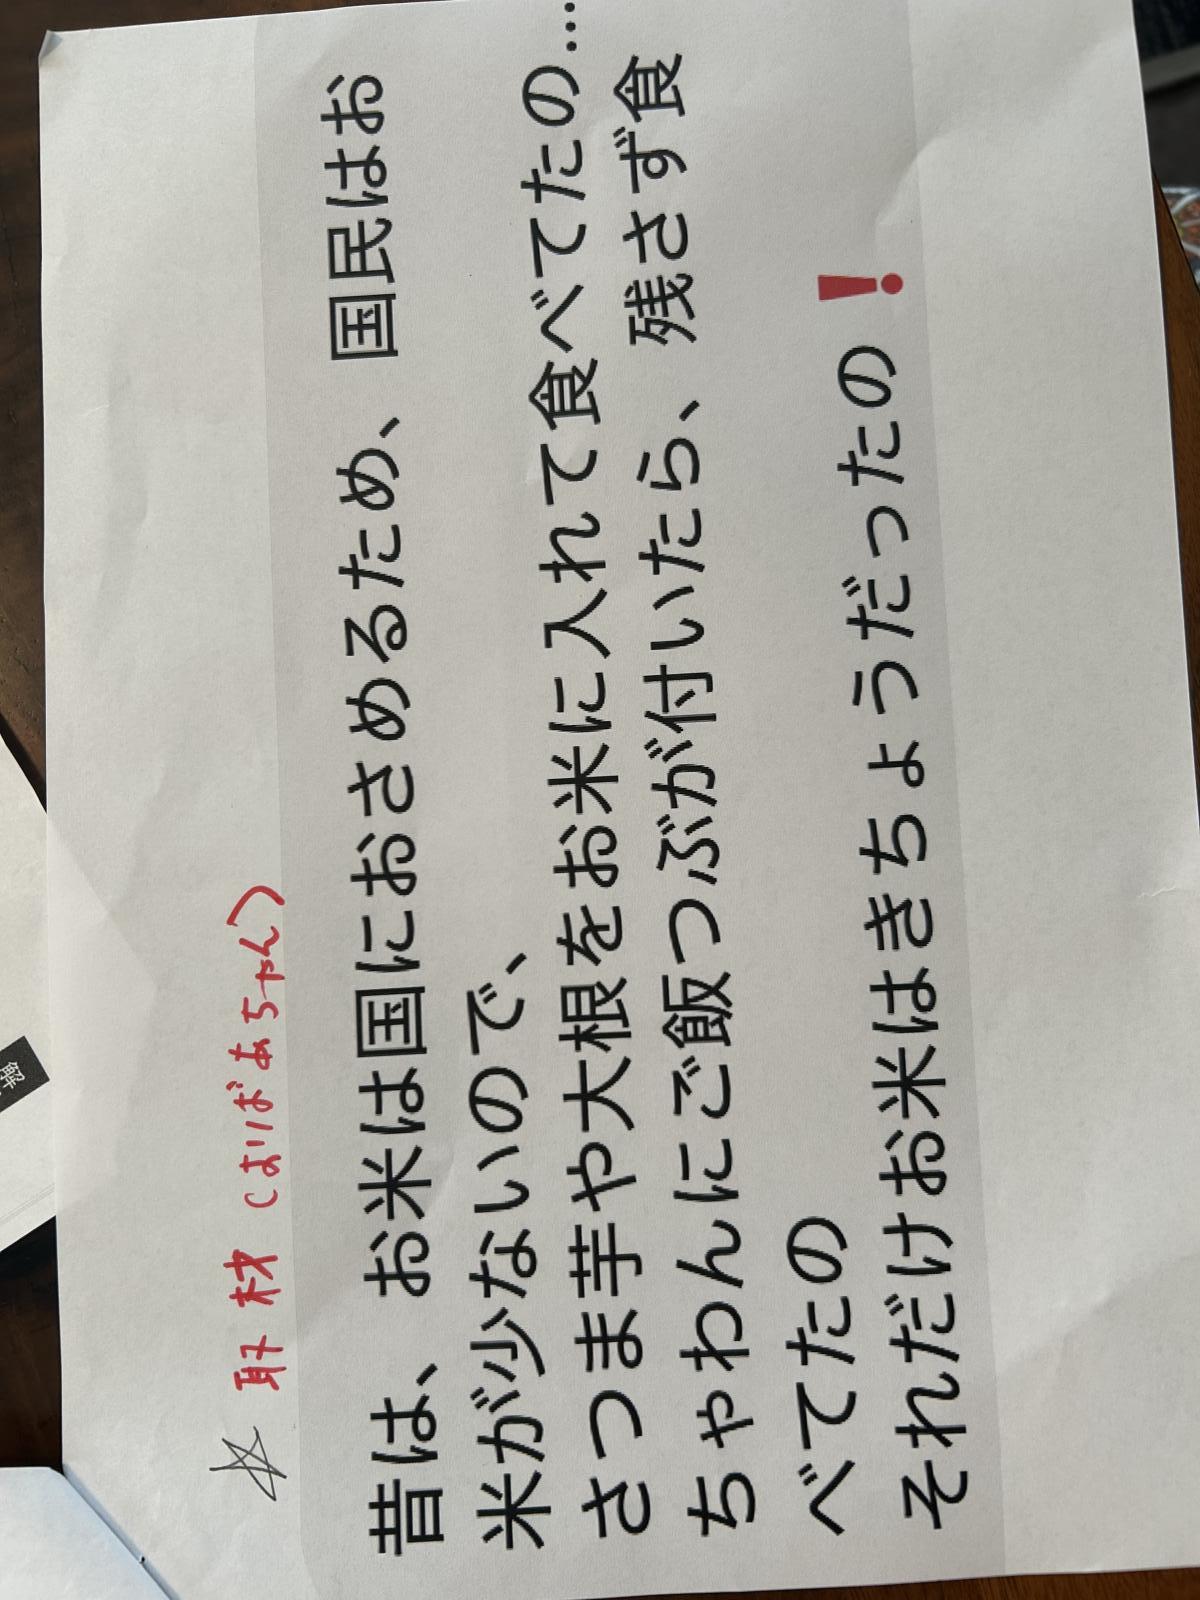 ☆ 取材（よりばあちゃん）
昔は、お米は国におさめるため、国民はお
米が少ないので、
さつま芋や大根をお米に入れて食べてたの…
ちゃわんにご飯つぶが付いたら、残さず食
べてたの
それだけお米はきちょうだったの❗
解